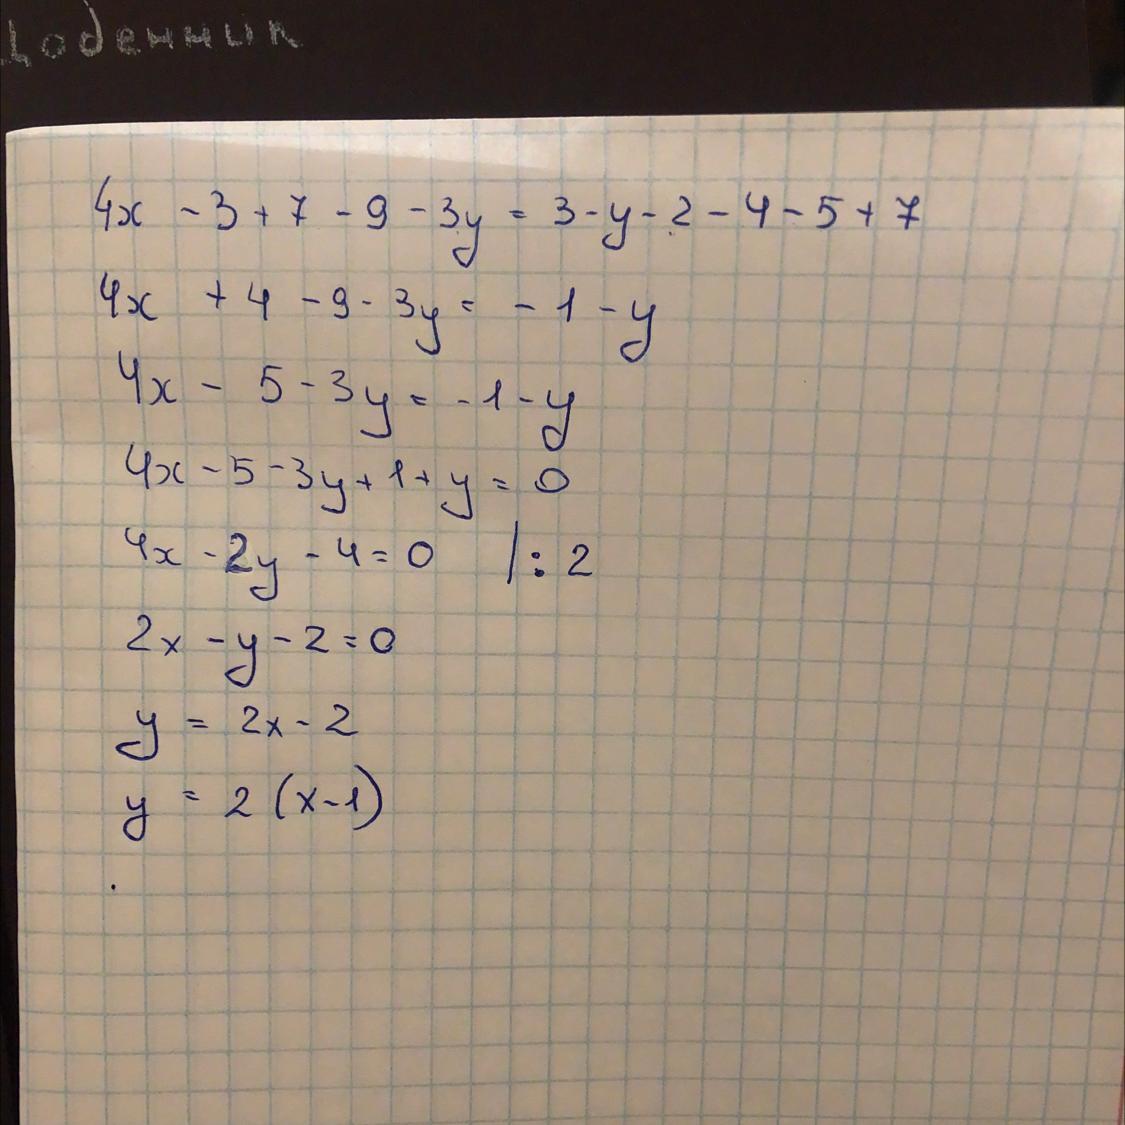 Щоденник
4x - 3 + 7 - 9 - 3y = 3 - y - 2 - 4 - 5 + 7
4x + 4 - 9 - 3y = - 1 - y
4x - 5 - 3y = - 1 - y
4x - 5 - 3y + 1 + y = 0
4x - 2y - 4 = 0 | : 2
2x - y - 2 = 0
y = 2x - 2
y = 2 (x - 1)